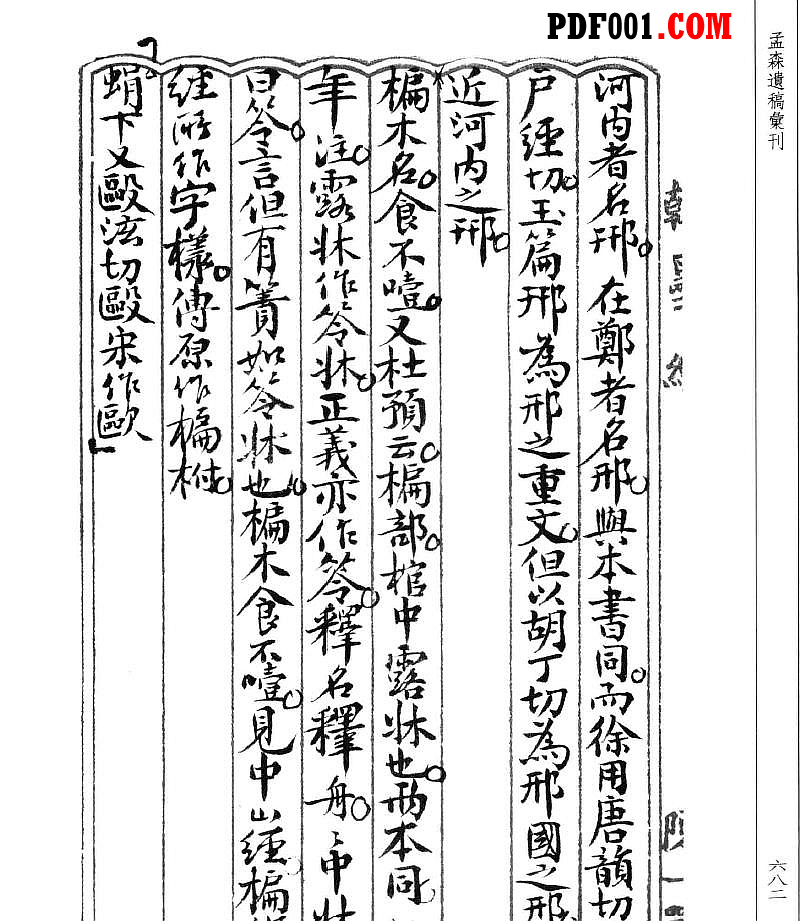 PDF001.COM
孟森遺稿彙刊
河内者名邢。在鄭者名邢。與本書同。而徐用唐韻切
户經切。玉篇邢為邢之重文。但以胡丁切為邢國之邢
近河内之邢。
楄木名。食不噎。又杜預云。楄部。棺中露牀也。兩本同。
年注。露牀作笭牀。正義亦作笭。釋名釋舟。舟中牀
曰笭。言但有簀如笭牀也。楄木食不噎。見中山經楄
經所作字樣。傳原作楄柎。
「蜎下又毆泫切毆宋作歐」
六八二